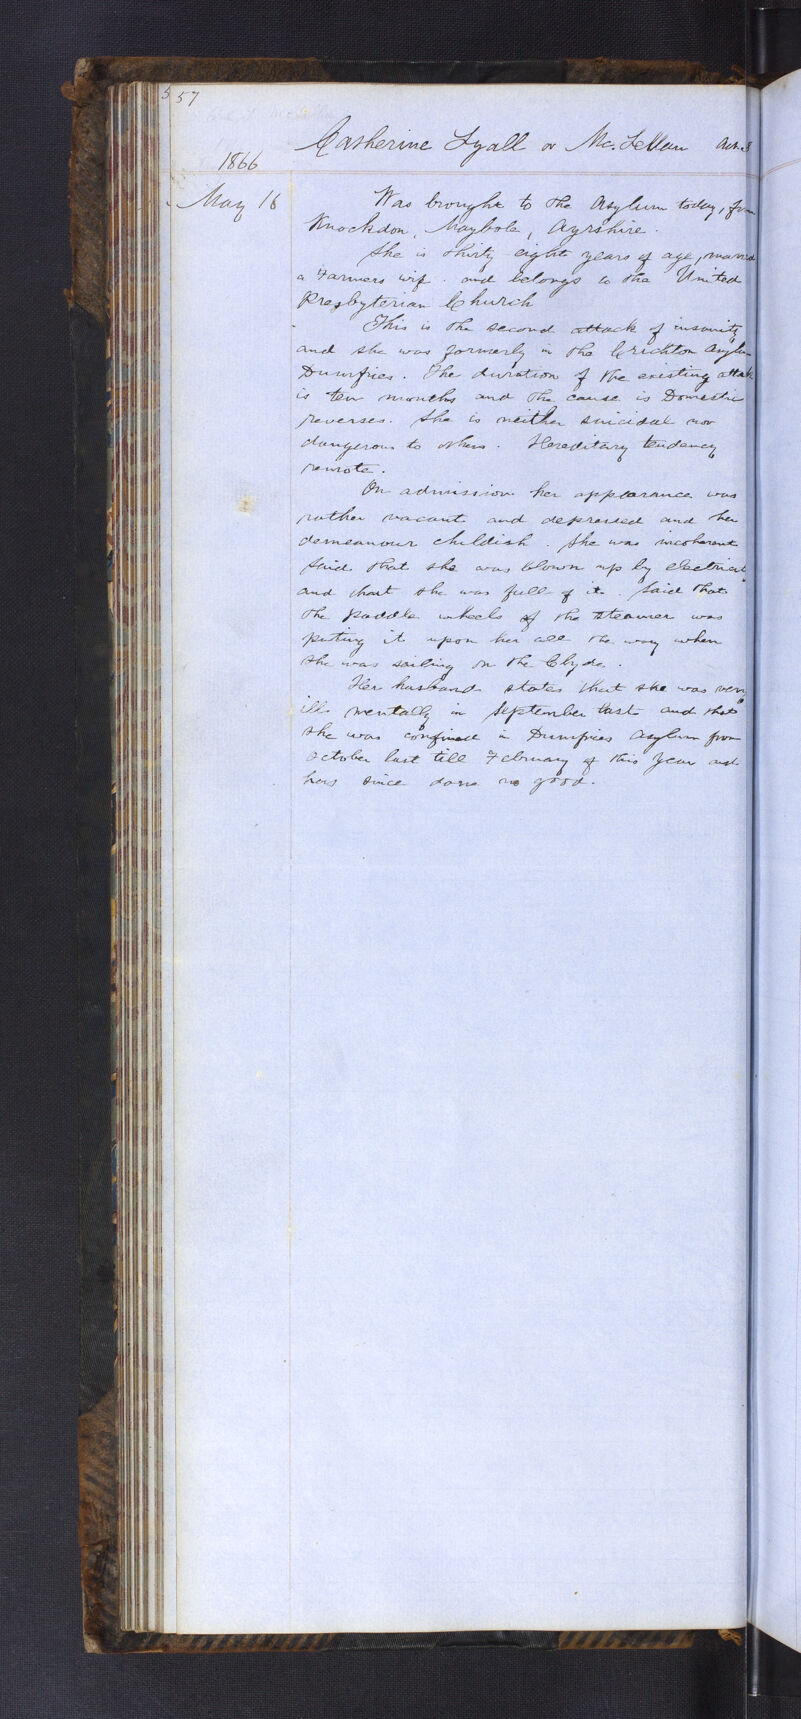 557
Catherine Lyall or Mc.Lellan
1866
May 16 Was brought to the Asylum today, from
Knockdon, Maybole, Ayrshire.
She is thirty eight years of age, married
a Farmers wife. and belongs to the United
Presbyterian Church
This is the second attack of insanity
and she was formerly in the Crichton Asylum
Dumfries. The duration of the existing attack
is ten months and the cause is Domestic
reverses. She is neither suicidal nor
dangerous to others. Hereditary tendency
remote.
On admission her appearance was
rather vacant and depressed and her
demeanour childish. She was incoherent
Said that she was blown up by electricity
and that she was full of it. Said that
the paddle wheels of the steamer was
puting it upon her all the way when
she was sailing on the Clyde.
Her husband states that she was very
ill mentally in September last and that
she was confined in Dumfries Asylum from
October last till February of this Year and
has since done no good.